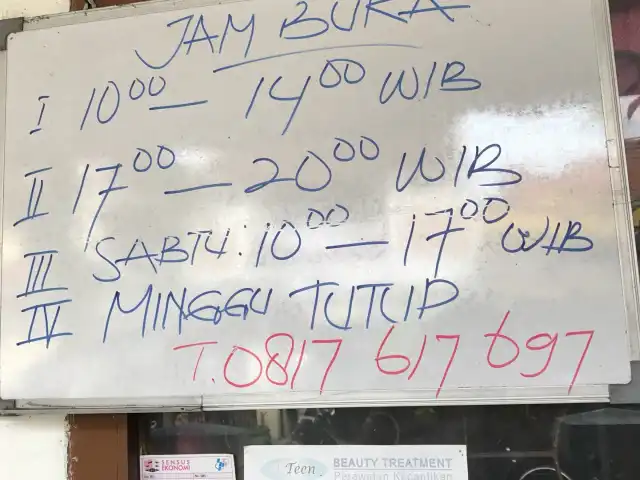 JAM BUKA
I 10⁰⁰ — 14⁰⁰ WIB
II 17⁰⁰ — 20⁰⁰ WIB
III SABTU: 10⁰⁰ — 17⁰⁰ WIB
IV MINGGU TUTUP
T. 0817 617 697
SENSUS
EKONOMI
Teen
BEAUTY TREATMENT
Perawatan Kecantikan